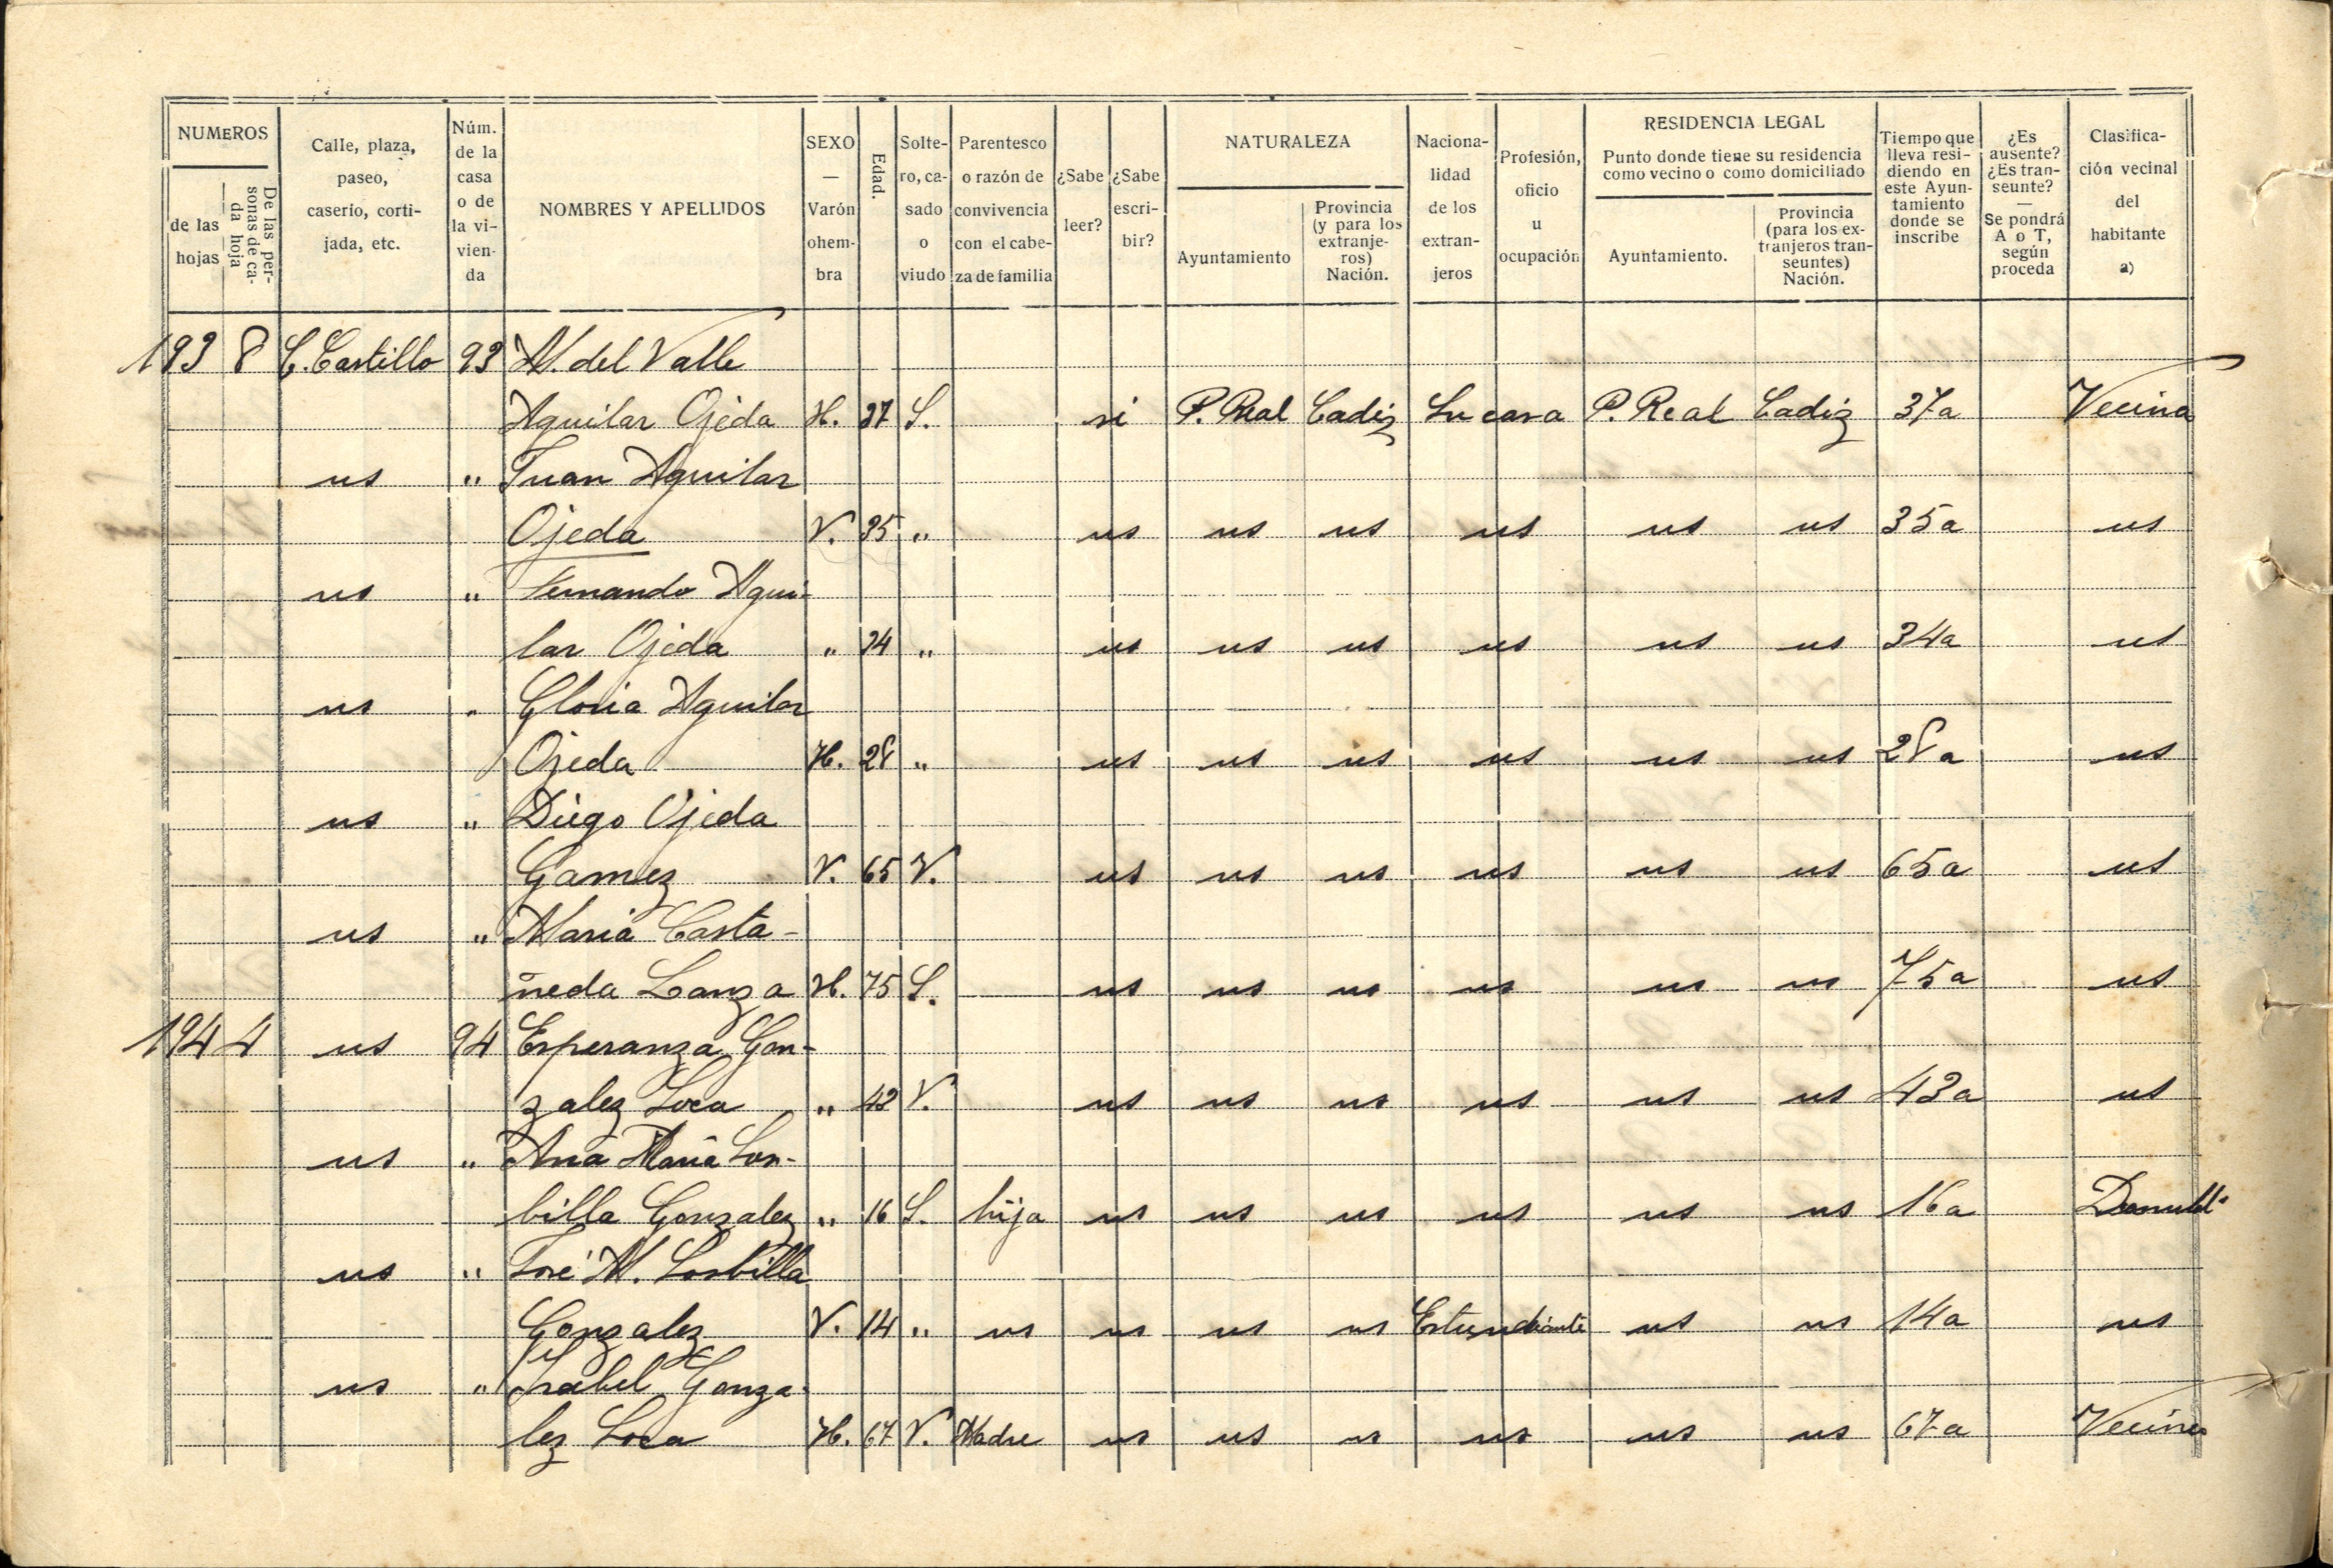 NUMEROS
de las hojas
De las personas de cada hoja
Calle, plaza, paseo, caserío, cortijada, etc.
Núm. de la casa o de la vivienda
NOMBRES Y APELLIDOS
SEXO — Varón o hembra
Edad.
Soltero, casado o viudo
Parentesco o razón de convivencia con el cabeza de familia
¿Sabe leer?
¿Sabe escribir?
NATURALEZA
Ayuntamiento
Provincia (y para los extranjeros) Nación.
Nacionalidad de los extranjeros
Profesión, oficio u ocupación
RESIDENCIA LEGAL
Punto donde tiene su residencia como vecino o como domiciliado
Ayuntamiento.
Provincia (para los extranjeros transeuntes) Nación.
Tiempo que lleva residiendo en este Ayuntamiento donde se inscribe
¿Es ausente? ¿Es transeunte? — Se pondrá A o T, según proceda
Clasificación vecinal del habitante a)
193 8 C. Castillo 93 M. del Valle
Aguilar Ojeda H. 37 S. si P. Real Cadiz Su casa P. Real Cadiz 37a Vecina
us " Juan Aguilar
Ojeda V. 35 " us us us us us us 35a us
us " Fernando Agui-
lar Ojeda " 34 " us us us us us us 34a us
us " Gloria Aguilar
Ojeda H. 28 " us us us us us us 28a us
us " Diego Ojeda
Gamez V. 65 V. us us us us us us 65a us
us " Maria Casta-
ñeda Lanza H. 75 S. us us us us us us 75a us
194 4 us 94 Esperanza Gon-
zalez " V. us us us us us us 43a us
us " Ana Maria
billa Gonzalez " 16 S. hija us us us us us us 16a
us " José M.
Gonzalez V. 14 " us us us us Estundiante us us 14a us
us " Isabel Gonza-
lez H. 67 V. Madre us us us us us us 67a Vecina